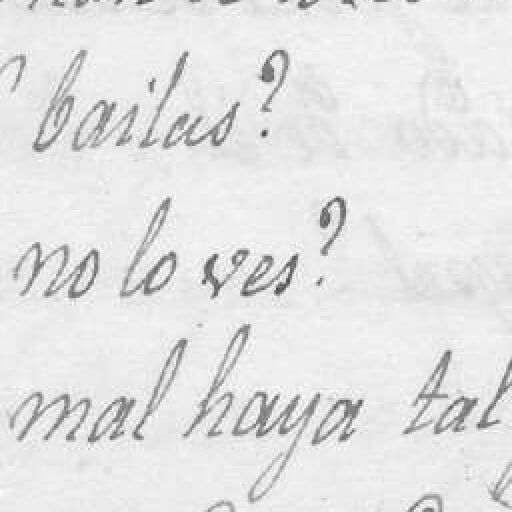 bailas?
no lo ves?
mal haya tal